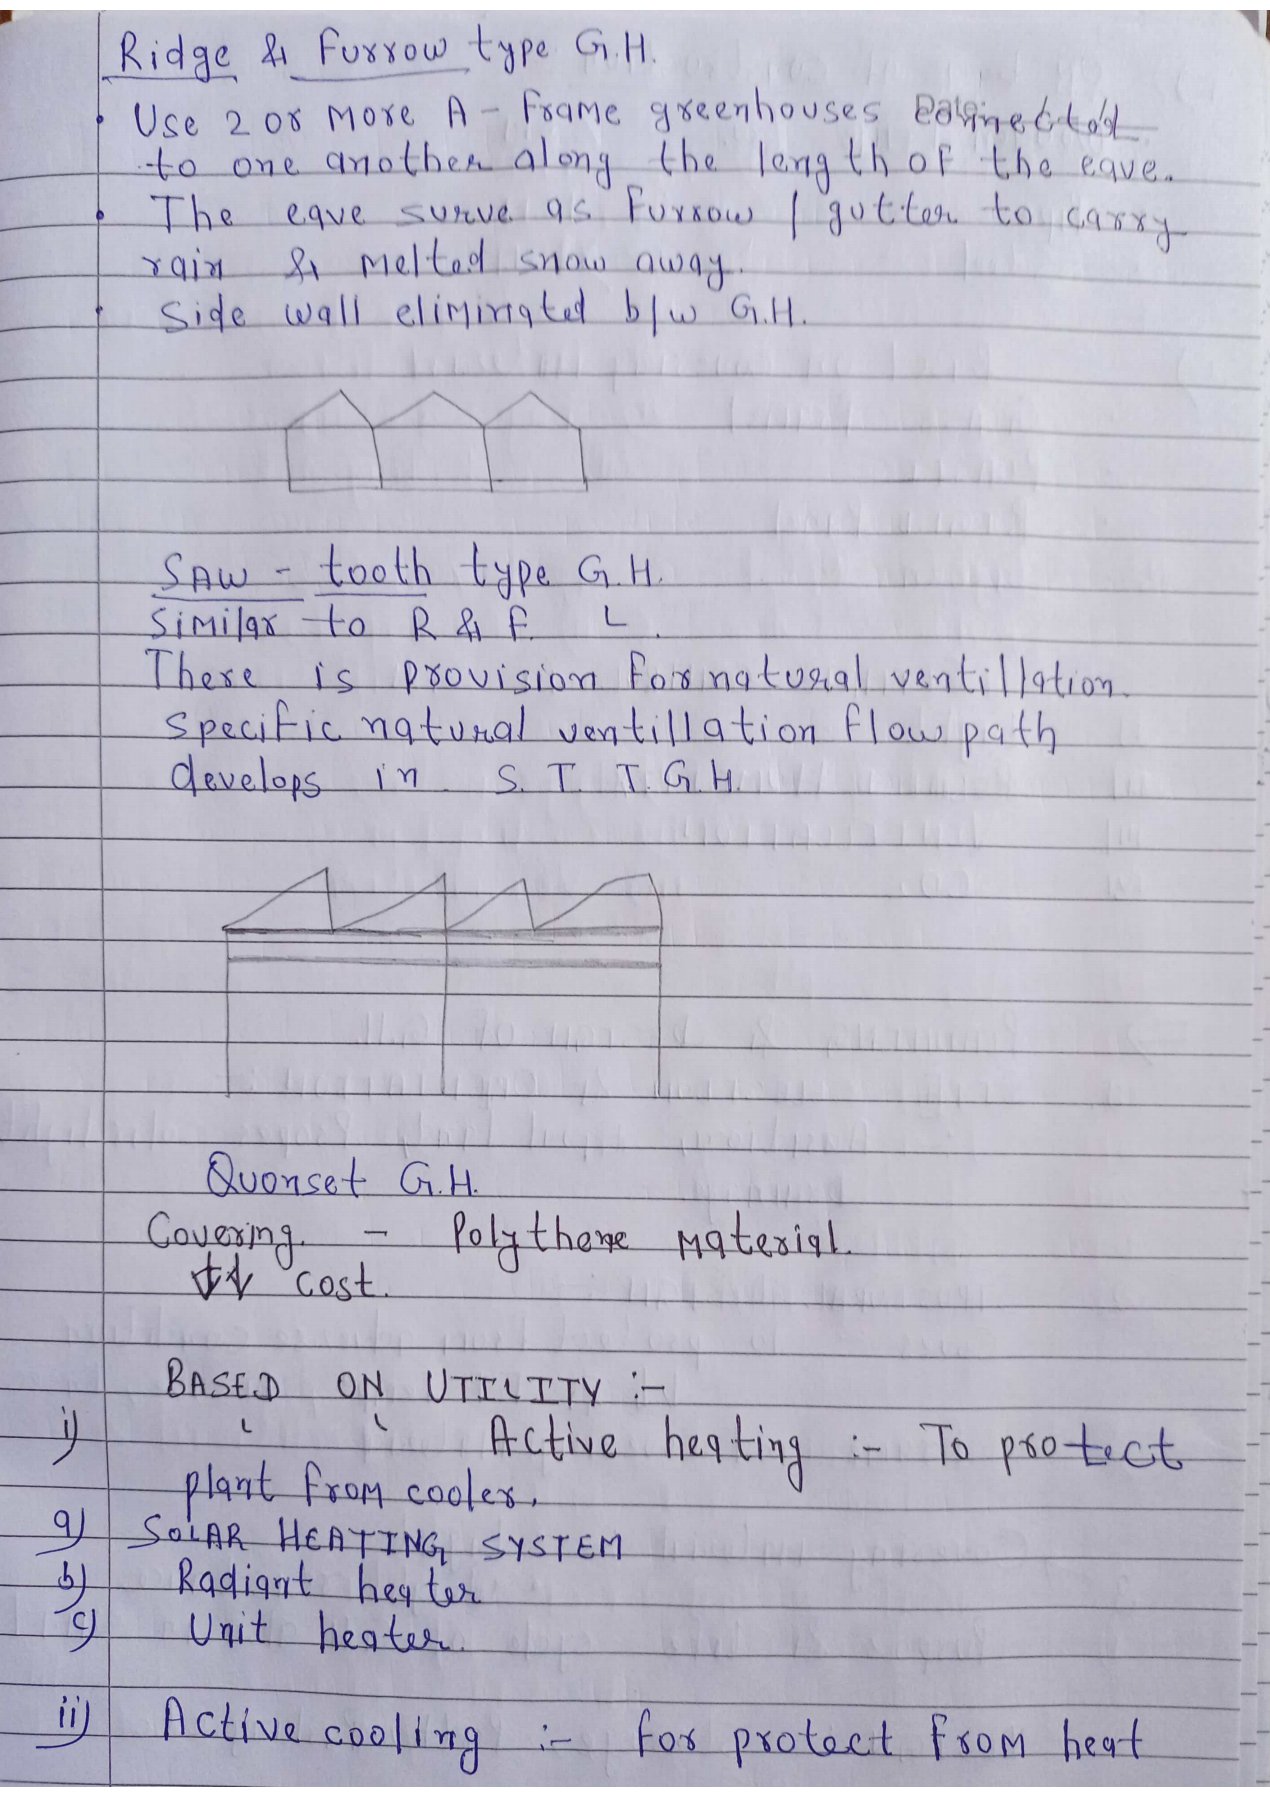 Ridge & Furrow type G.H.
Use 2 or more A - Frame greenhouses connected
to one another along the length of the eave.
The eave surve as furrow / gutter to carry
rain & melted snow away.
Side wall eliminated b/w G.H.
SAW - tooth type G.H.
Similar to R & F.
There is provision for natural ventillation.
specific natural ventillation flow path
develops in S. T. T. G. H.
Quonset G.H.
Covering. - Polythene material.
↓↓ cost.
BASED ON UTILITY :-
i) Active heating :- To protect
plant from cooler.
a) SOLAR HEATING SYSTEM
b) Radiant heater
c) Unit heater.
ii) Active cooling :- for protect from heat